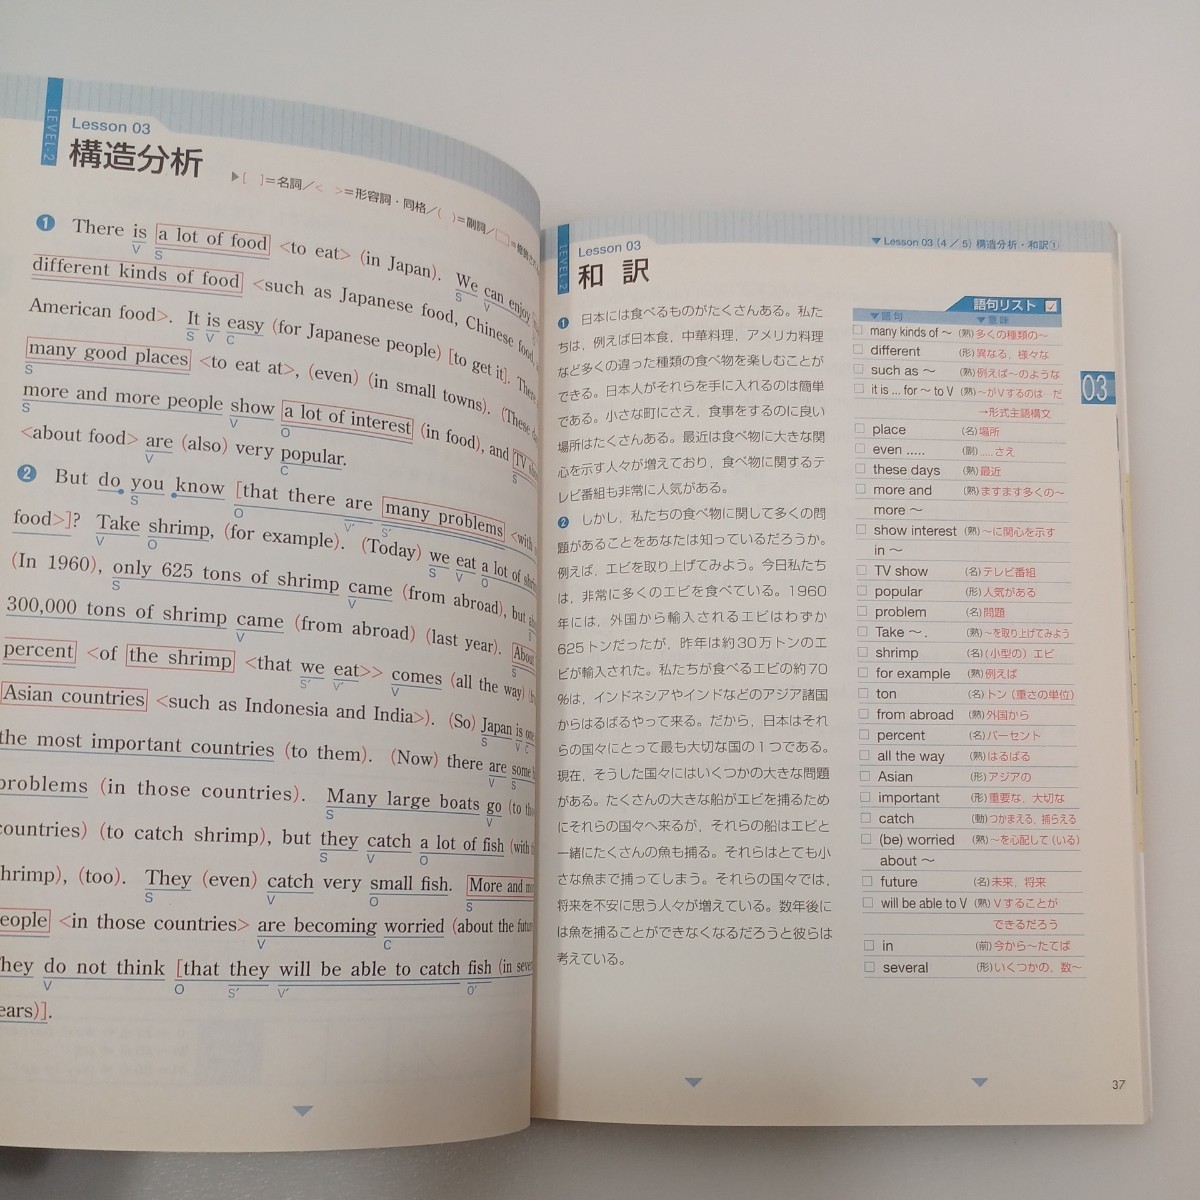 LEVEL-2
Lesson 03
構造分析
▶[ ]=名詞／< >=形容詞・同格／( )=副詞／
❶ There is a lot of food <to eat> (in Japan). We can enjoy
V S S V
different kinds of food <such as Japanese food, Chinese food,
American food>. It is easy (for Japanese people) [to get it].
S V C
many good places <to eat at>, (even) (in small towns). (These
S
more and more people show a lot of interest (in food), and TV
S V O S
<about food> are (also) very popular.
V C
❷ But do you know [that there are many problems <with
S O V′ S′
food>]? Take shrimp, (for example). (Today) we eat a lot of
V O S V O
(In 1960), only 625 tons of shrimp came (from abroad), but
S V
300,000 tons of shrimp came (from abroad) (last year). About
V S
percent <of the shrimp <that we eat>> comes (all the way)
S′ V′ V
Asian countries <such as Indonesia and India>). (So) Japan is one
S V C
the most important countries (to them). (Now) there are some
V S
problems (in those countries). Many large boats go (to
S V
countries) (to catch shrimp), but they catch a lot of fish (with
S V O
hrimp), (too). They (even) catch very small fish. More and
S V O S
eople <in those countries> are becoming worried (about the future
V C
hey do not think [that they will be able to catch fish (in
V O S′ V′ O′
ears)].
LEVEL-2
Lesson 03
和訳
▼Lesson 03 (4／5) 構造分析・和訳①
❶ 日本には食べるものがたくさんある。私た
ちは，例えば日本食，中華料理，アメリカ料理
など多くの違った種類の食べ物を楽しむことが
できる。日本人がそれらを手に入れるのは簡単
である。小さな町にさえ，食事をするのに良い
場所はたくさんある。最近は食べ物に大きな関
心を示す人々が増えており，食べ物に関するテ
レビ番組も非常に人気がある。
❷ しかし，私たちの食べ物に関して多くの問
題があることをあなたは知っているだろうか。
例えば，エビを取り上げてみよう。今日私たち
は，非常に多くのエビを食べている。1960
年には，外国から輸入されるエビはわずか
625トンだったが，昨年は約30万トンのエ
ビが輸入された。私たちが食べるエビの約70
%は，インドネシアやインドなどのアジア諸国
からはるばるやって来る。だから，日本はそれ
らの国々にとって最も大切な国の1つである。
現在，そうした国々にはいくつかの大きな問題
がある。たくさんの大きな船がエビを捕るため
にそれらの国々へ来るが，それらの船はエビと
一緒にたくさんの魚も捕る。それらはとても小
さな魚まで捕ってしまう。それらの国々では，
将来を不安に思う人々が増えている。数年後に
は魚を捕ることができなくなるだろうと彼らは
考えている。
語句リスト
▼語句 ▼意味
many kinds of ～ (熟)多くの種類の～
different (形)異なる，様々な
such as ～ (熟)例えば～のような
it is ... for ～ to V (熟)～がVするのは…だ
→形式主語構文
place (名)場所
even ..... (副).....さえ
these days (熟)最近
more and (熟)ますます多くの～
more ～
show interest (熟)～に関心を示す
in ～
TV show (名)テレビ番組
popular (形)人気がある
problem (名)問題
Take ～. (熟)～を取り上げてみよう
shrimp (名)(小型の) エビ
for example (熟)例えば
ton (名)トン (重さの単位)
from abroad (熟)外国から
percent (名)パーセント
all the way (熟)はるばる
Asian (形)アジアの
important (形)重要な，大切な
catch (動)つかまえる，捕らえる
(be) worried (熟)～を心配して (いる)
about ～
future (名)未来，将来
will be able to V (熟)Vすることが
できるだろう
in (前)今から～たてば
several (形)いくつかの，数～
03
37